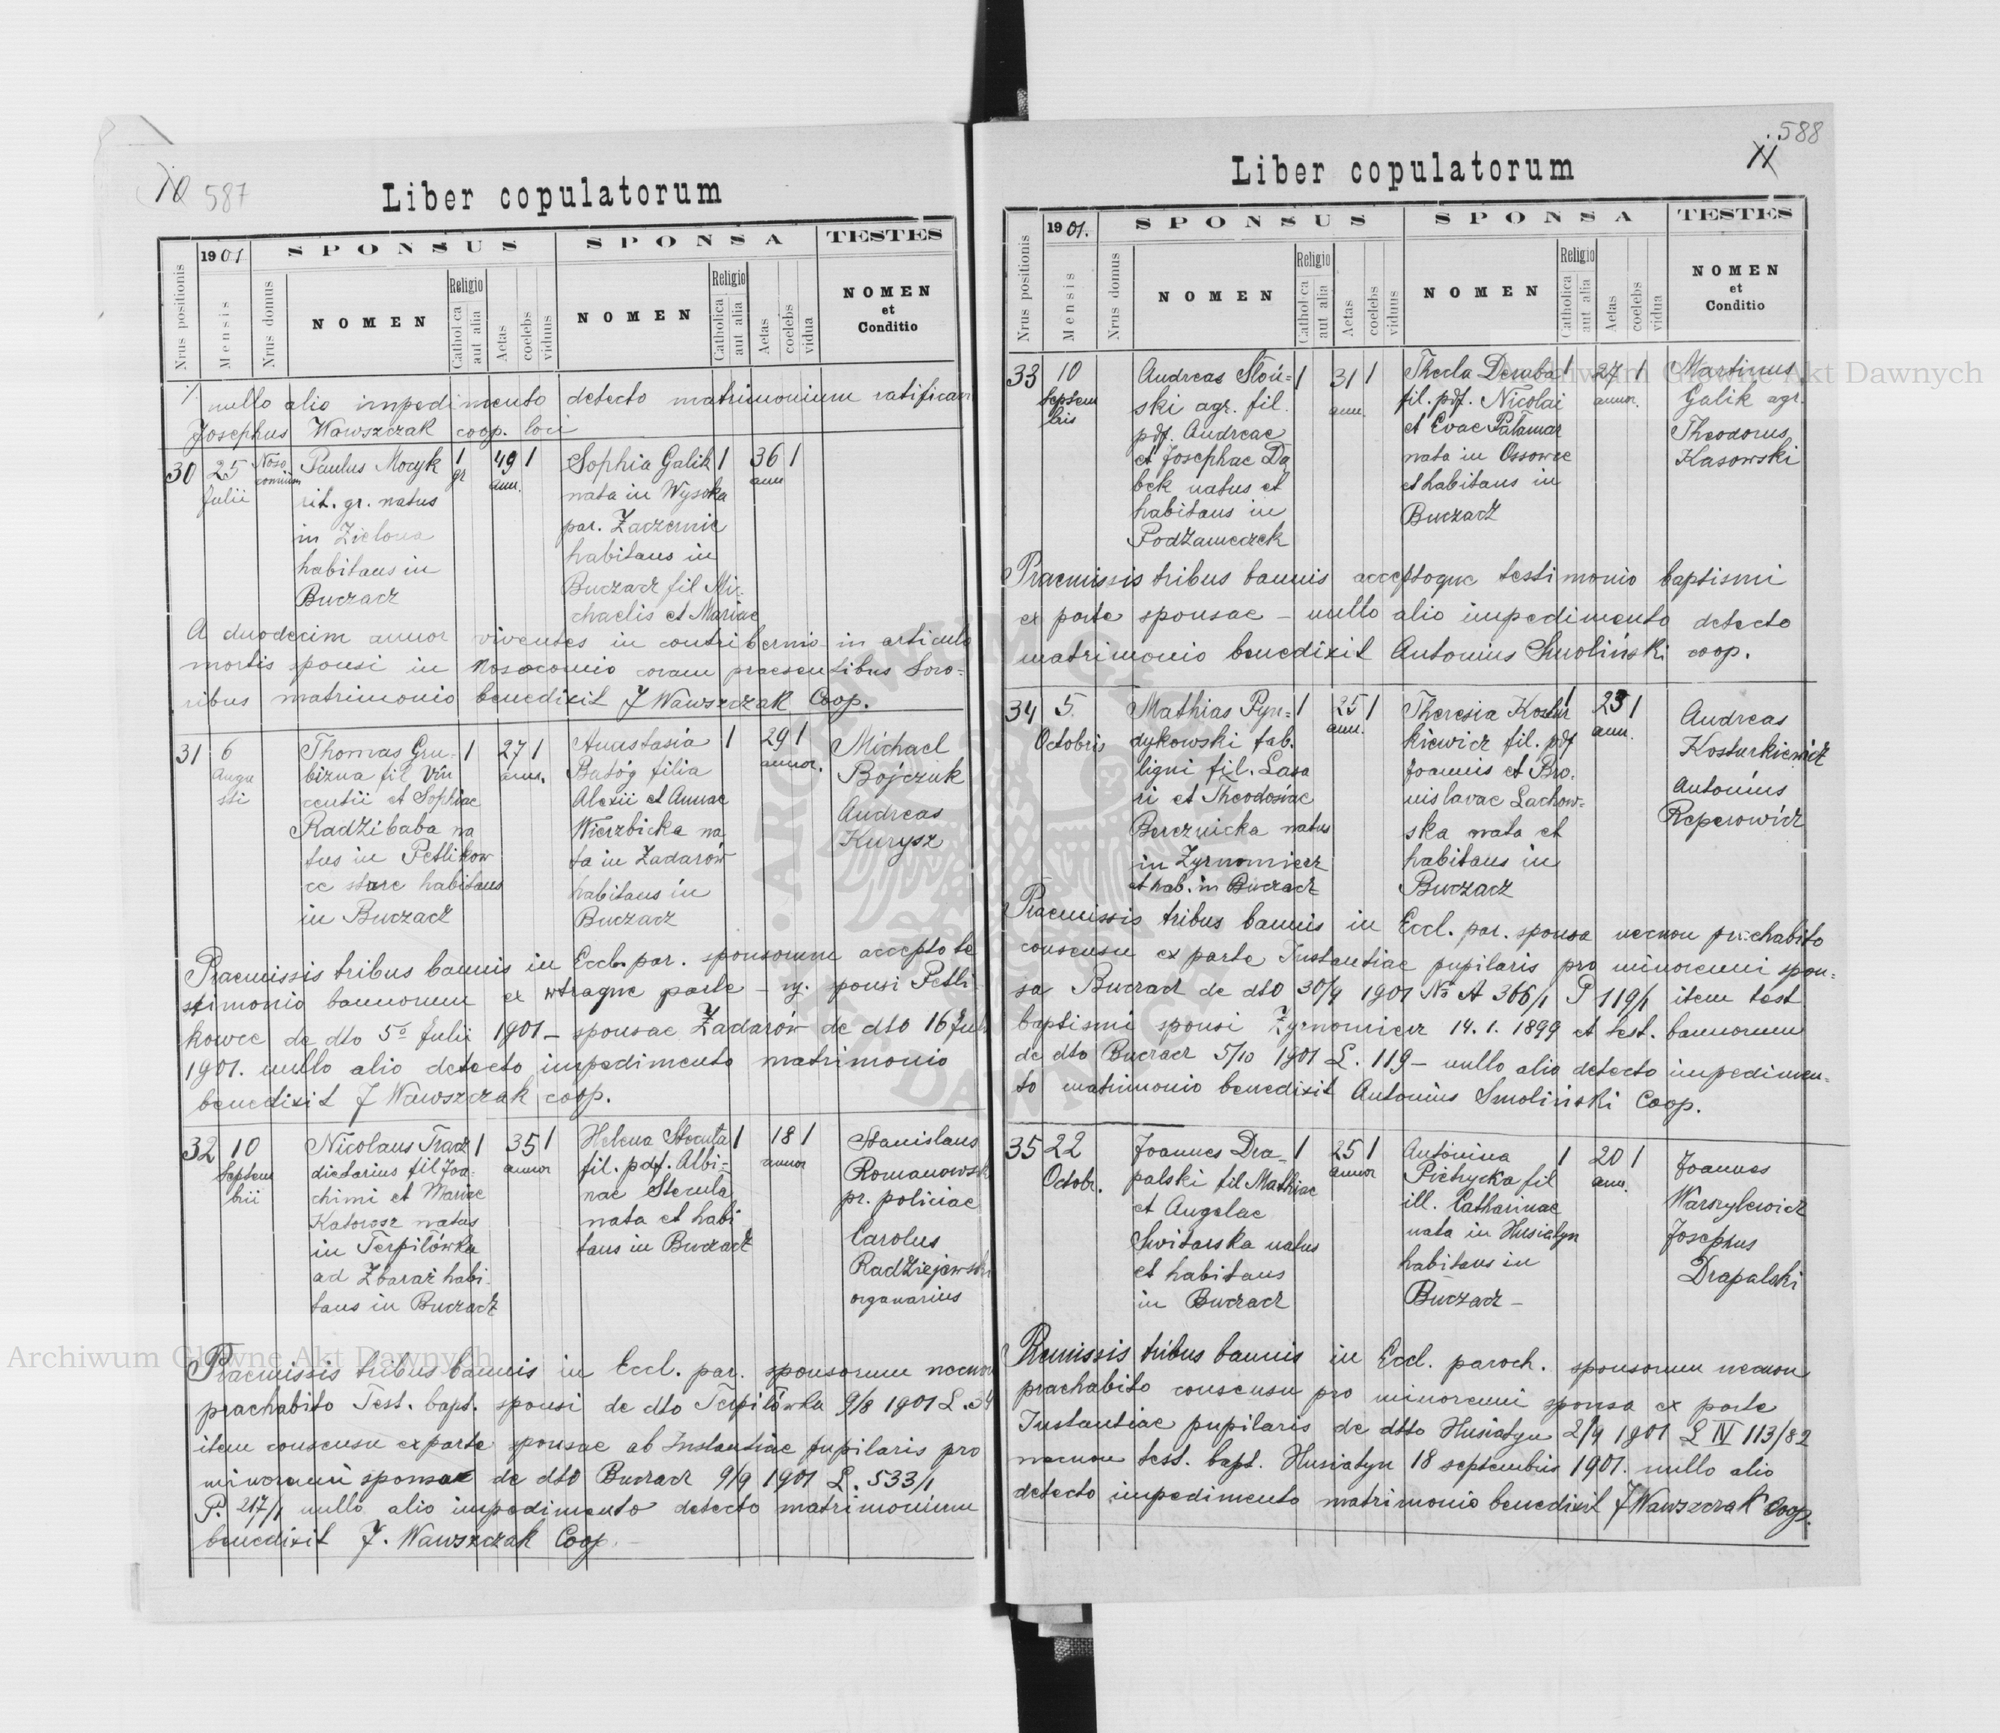 10 587
Liber copulatorum
Nrus positionis
1901
Mensis
Nrus domus
SPONSUS
NOMEN
Religio
Catholica
aut alia
Aetas
coelebs
viduus
SPONSA
NOMEN
Religio
Catholica
aut alia
Aetas
coelebs
vidua
TESTES
NOMEN
et
Conditio
nullo alio impedimento detecto matrimonium ratificavi
Josephus Wawszczak coop. loci
30 25 Julii
Nosoconium
Paulus Mocyk
rit. gr. natus
in Zielona
habitans in
Buczacz
1 gr
49 ann. 1
Sophia Galik
nata in Wysoka
par. Zaczernie
habitans in
Buczacz fil Mi-
chaelis et Mariae
1
36 ann 1
A duodecim annor viventes in contribernio in articulo
mortis sponsi in Nosoconio coram praesentibus Soro=
ribus matrimonio benedixit J Wawszczak Coop.
31 6 Augusti
Thomas Gru-
bizna fil Vin
centii et Sophiae
Radzibaba na
tus in Petlikow
ce stare habitans
in Buczacz
1
27 ann. 1
Anastasia
Batóg filia
Alexii et Annae
Wierzbicka na
ta in Zadarów
habitans in
Buczacz
1
29 annor. 1
Michael
Bojczuk
Andreas
Kurysz
Praemissis tribus bannis in Eccl. par. sponsorum accepto te
stimonio bannorum ex utraque parte – sponsi Petli-
kowce de dto 5 Julii 1901 – sponsae Zadarów de dto 16 Julii
1901. nullo alio detecto impedimento matrimonio
benedixit J Wawszczak coop.
32 10 Septembrii
Nicolaus Tracz
dietarius fil Joa-
chimi et Mariae
Katorosz natus
in Terpilówka
ad Zbaraż habi-
tans in Buczacz
1
35 annor 1
Helena Stecula
fil. pdf. Albi-
nae Stecula
nata et habi
tans in Buczacz
1
18 annor 1
Stanislaus
Romanowski
pr. policiae
Carolus
Radziejewski
organarius
Praemissis tribus bannis in Eccl. par. sponsorum necnon
praehabito Test. bapt. sponsi de dto Terpilówka 9/8 1901 L. 34
item consensu ex parte sponsae ab Instantiae pupilaris pro
minorenni sponsae de dto Buczacz 9/9 1901 L. 533/1
P. 217/1 nullo alio impedimento detecto matrimonium
benedixit J. Wawszczak Coop. –
588
11
Liber copulatorum
Nrus positionis
1901.
Mensis
Nrus domus
SPONSUS
NOMEN
Religio
Catholica
aut alia
Aetas
coelebs
viduus
SPONSA
NOMEN
Religio
Catholica
aut alia
Aetas
coelebs
vidua
TESTES
NOMEN
et
Conditio
33 10 Septembris
Andreas Słoń=
ski agr. fil.
pdf. Andreae
et Josephae Dą
bek natus et
habitans in
Podzameczek
1
31 ann. 1
Thecla Demba
fil. pdf. Nicolai
et Evae Patamar
nata in Ossowce
et habitans in
Buczacz
1
27 annor. 1
Martinus
Galik agr.
Theodorus
Kasowski
Praemissis tribus bannis acceptoque testimonio baptismi
ex parte sponsae – nullo alio impedimento detecto
matrimonio benedixit Antonius Smoliński coop.
34 5. Octobris
Mathias Pyn=
dykowski fab.
ligni fil. Laza
ri et Theodosiae
Bereznicka natus
in Zyrnomierz
et hab. in Buczacz
1
25 ann. 1
Theresia Kostur
kiewicz fil. pdf
Joannis et Bro-
nislavae Lachow-
ska nata et
habitans in
Buczacz
1
23 ann. 1
Andreas
Kosturkiewicz
Antonius
Reperowicz
Praemissis tribus bannis in Eccl. par. sponsa necnon praehabito
consensu ex parte Instantiae pupilaris pro minorenni spon=
sa Buczacz de dto 30/9 1901 No A 366/1 P 119/1 item test
baptismi sponsi Zyrnomierz 14. 1. 1899 et test. bannorum
de dto Buczacz 5/10 1901 L. 119 – nullo alio detecto impedimen=
to matrimonio benedixit Antonius Smoliński Coop.
35 22 Octobr.
Joannes Dra-
palski fil Mathiae
et Angelae
Switarska natus
et habitans
in Buczacz
1
25 annor 1
Antonina
Pietrycka fil
ill. Catharinae
nata in Husiatyn
habitans in
Buczacz –
1
20 ann. 1
Joannes
Waszylewicz
Josephus
Drapalski
Premissis tribus bannis in Eccl. paroch. sponsorum necnon
praehabito consensu pro minorenni sponsa ex parte
Instantiae pupilaris de dtto Husiatyn 2/9 1901 L IV 113/82
necnon test. bapt. Husiatyn 18 septembris 1901. nullo alio
detecto impedimento matrimonio benedixit J Wawszczak Coop.
Archiwum Główne Akt Dawnych
Archiwum Główne Akt Dawnych